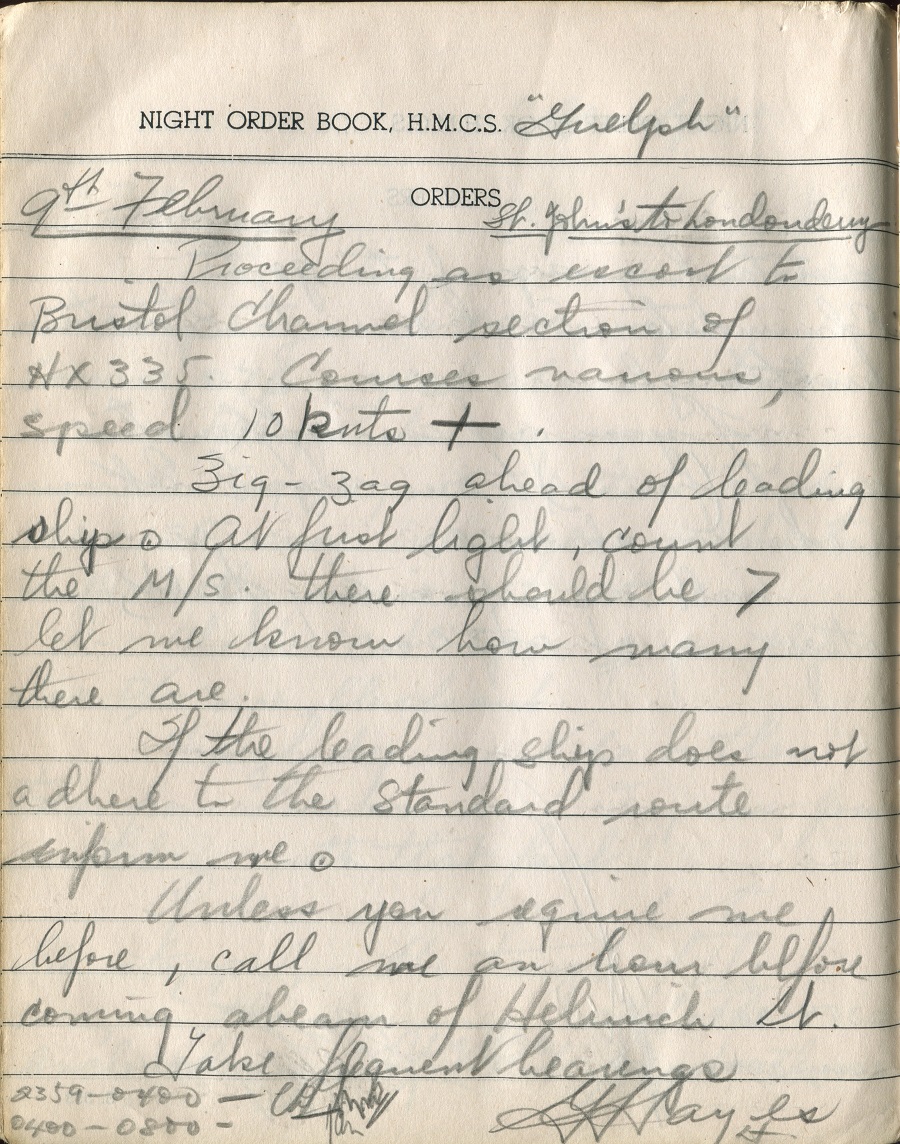 NIGHT ORDER BOOK, H.M.C.S. "Guelph"
ORDERS
9th February St. John's to Londonderry
Proceeding as escort to
Bristol Channel section of
HX335. Courses various,
speed 10 knts +.
Zig-zag ahead of leading
ship. At first light, count
the M/S. there should be 7
let me know how many
there are.
If the leading ship does not
adhere to the standard route
inform me.
Unless you require me
before, call me an hour before
coming abeam of Helwick Lt.
Take frequent bearings
2359-0400 -
0400-0800 - GH Hayes